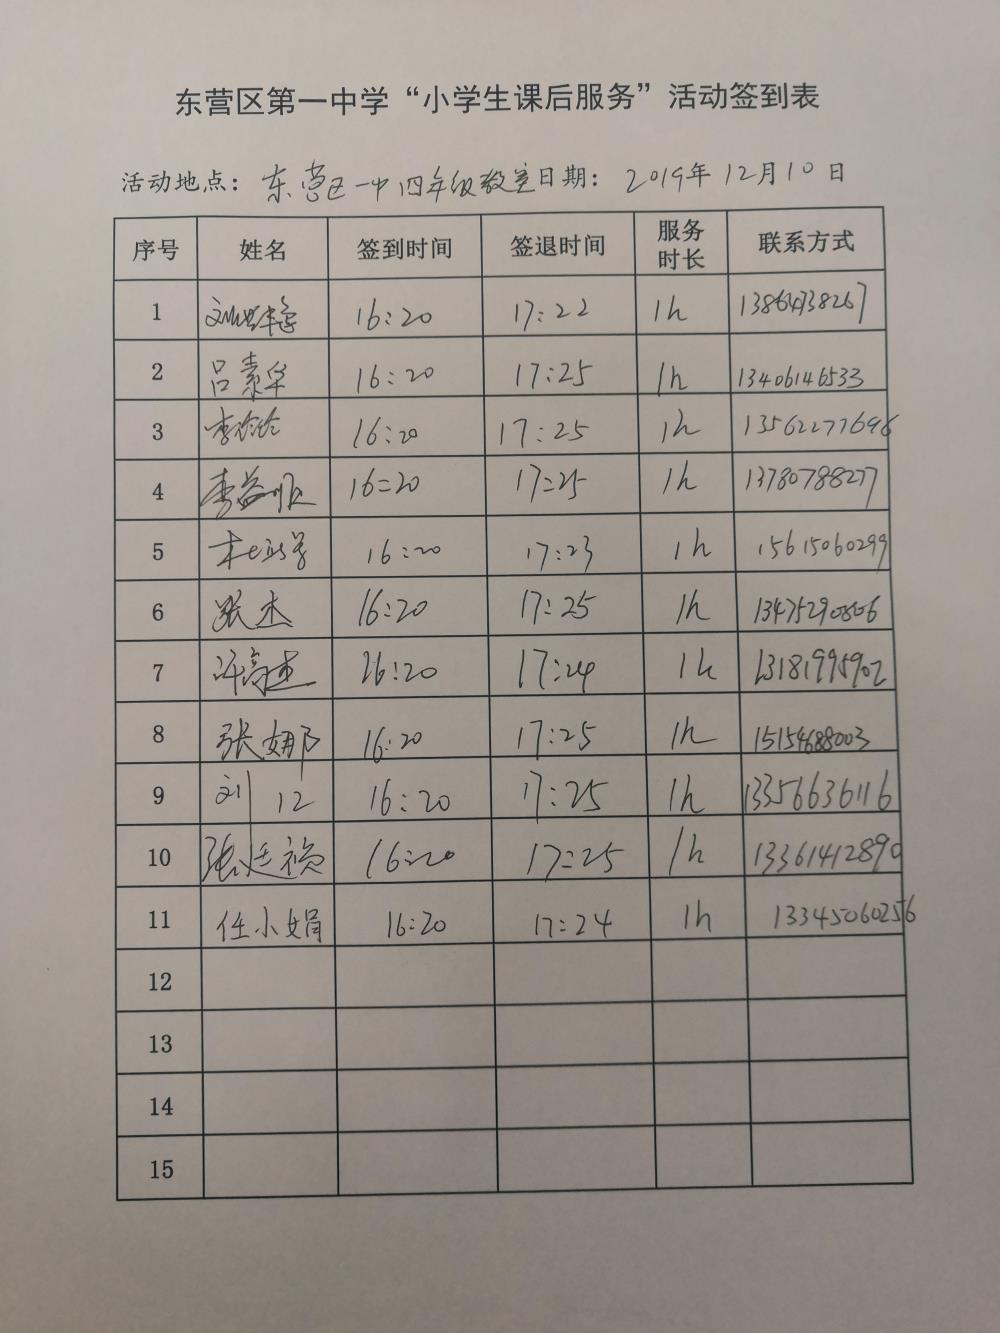 东营区第一中学“小学生课后服务”活动签到表
活动地点：东营区一中四年级教室 日期：2019年12月10日
序号 姓名 签到时间 签退时间 服务时长 联系方式
1 16:20 17:22 1h 13864738267
2 吕素华 16:20 17:25 1h 13406146533
3 李伶伶 16:20 17:25 1h 13562277696
4 李益顺 16:20 17:25 1h 13780788277
5 16:20 17:23 1h 15615060299
6 张杰 16:20 17:25 1h 13475290806
7 许高杰 16:20 17:24 1h 13181995902
8 张娜 16:20 17:25 1h 15154688003
9 刘江 16:20 17:25 1h 13356636116
10 张廷祯 16:20 17:25 1h 13361412890
11 任小娟 16:20 17:24 1h 13345060256
12
13
14
15